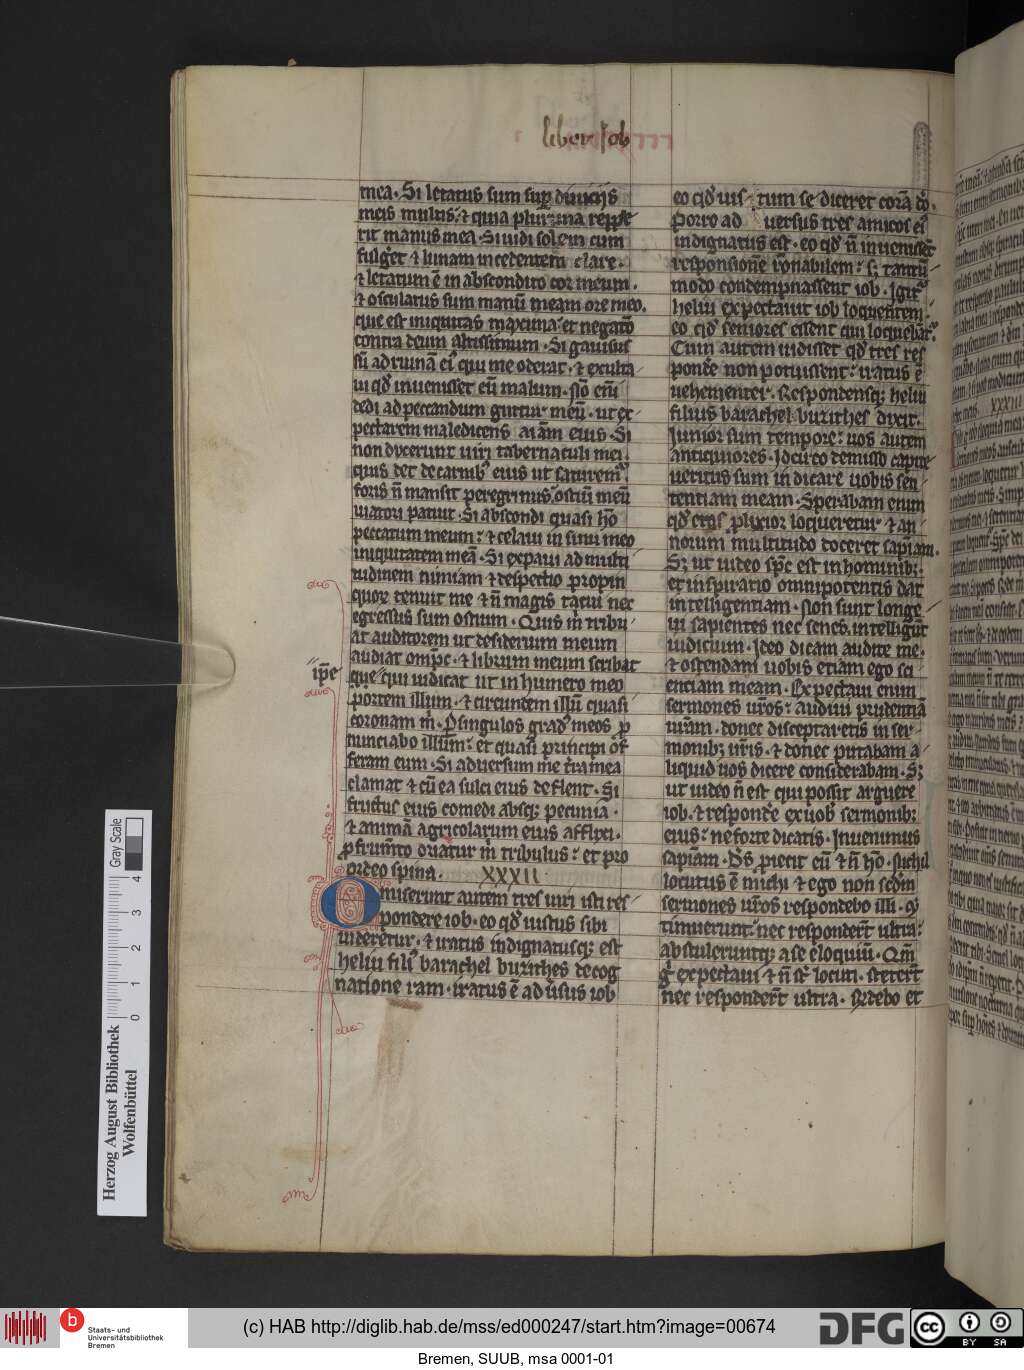 liber Job
mea. Si letatus sum sup diuicijs
meis multis: ⁊ quia plurima reppe
rit manus mea. Si uidi solem cum
fulgeret ⁊ lunam incedentem clare.
⁊ letatum ē in abscondito cor meum.
⁊ osculatus sum manū meam ore meo.
que est iniquitas maxima: et negatō
contra deum altissimum. Si gauisus
sū ad ruinā eiꝰ qui me oderat. ⁊ exulta
ui qd̄ inuenisset eū malum. Nō em̄
dedi ad peccandum guttur meū. ut ex
pectarem maledicens aīam eius. Si
non dixerunt uiri tabernaculi mei.
quis det de carnibꝰ eius ut saturemꝰ
foris n̄ mansit peregrinus. ostiū meū
uiatori patuit. Si abscondi quasi hō
peccatum meum: ⁊ celaui in sinu meo
iniquitatem meā. Si expaui ad multi
tudinem nimiam ⁊ despectio propin
quorꝫ terruit me ⁊ n̄ magis tacui nec
egressus sum ostium. Quis m̄ tribu
at auditorem ut desiderium meum
audiat omps. ⁊ librum meum scribat
ipse
que qui iudicat ut in humero meo
portem illum. ⁊ circundem illū quasi
coronam m̄. Per singulos gradꝰ meos p
nunciabo illum: et quasi principi of
feram eum. Si aduersum me terra mea
clamat ⁊ cū ea sulci eius deflent. Si
fructus eius comedi absqꝫ pecunia.
⁊ animā agricolarum eius afflixi.
p frumēto oriatur m̄ tribulus: et pro
ordeo spina. XXXII
Omiserunt autem tres uiri isti res
pondere iob. eo qd̄ iustus sibi
uideretur. ⁊ iratus indignatusqꝫ est
heliu filiꝰ barachel buzithes de cog
natione ram. iratus ē ad usus iob
eo qd̄ ius tum se diceret corā dō.
Porro ad uersus tres amicos eiꝰ
indignatus est. eo qd̄ n̄ inuenissēt
responsionē rōnabilem: sꝫ tantū
modo condempnassent iob. Igitꝰ
heliu expectauit iob loquentem
eo qd̄ seniores essent qui loquebātꝰ.
Cum autem uidisset qd̄ tres res
pondē non potuissent: iratus ē
uehementer. Respondensqꝫ heliu
filius barachel buzithes dixit.
Junior sum tempore: uos autem
antiquiores. Idcirco demisso capite
ueritus sum indicare uobis sen
tentiam meam. Sperabam enim
qd̄ etas prolixior loqueretur ⁊ an
norum multitudo doceret sapiam.
Sꝫ ut uideo spc̄ est in hominibꝫ
et inspiratio omnipotentis dat
intelligentiam. Non sunt longe
ui sapientes nec senes intelligūt
iudicium. Ideo dicam audite me.
⁊ ostendam uobis etiam ego sci
entiam meam. Expectaui enim
sermones ur̄os: audiui prudentiā
uram. donec disceptaretis in ser
monibꝫ ur̄is. ⁊ donec putabam a
liquid uos dicere considerabam. Sꝫ
ut uideo n̄ est qui possit arguere
iob. ⁊ respondē ex uob sermonibꝫ
eius: ne forte dicatis. Inuenimus
sapiam. Ds̄ proiecit eū ⁊ n̄ hō. Nichil
locutus ē michi ⁊ ego non scdm̄
sermones ur̄os respondebo illi. Ex
timuerunt: nec responderūt ultra:
abstuleruntqꝫ a se eloquiū. Qm̄
gͦ expectaui ⁊ n̄ st̄ locuti. steterūt
nec responderūt ultra. Respōdebo et
XXXIII
Herzog August Bibliothek
Wolfenbüttel
0 1 2 3 4
Gray Scale
b
Staats- und
Universitätsbibliothek
Bremen
(c) HAB http://diglib.hab.de/mss/ed000247/start.htm?image=00674
DFG
cc
BY SA
Bremen, SUUB, msa 0001-01